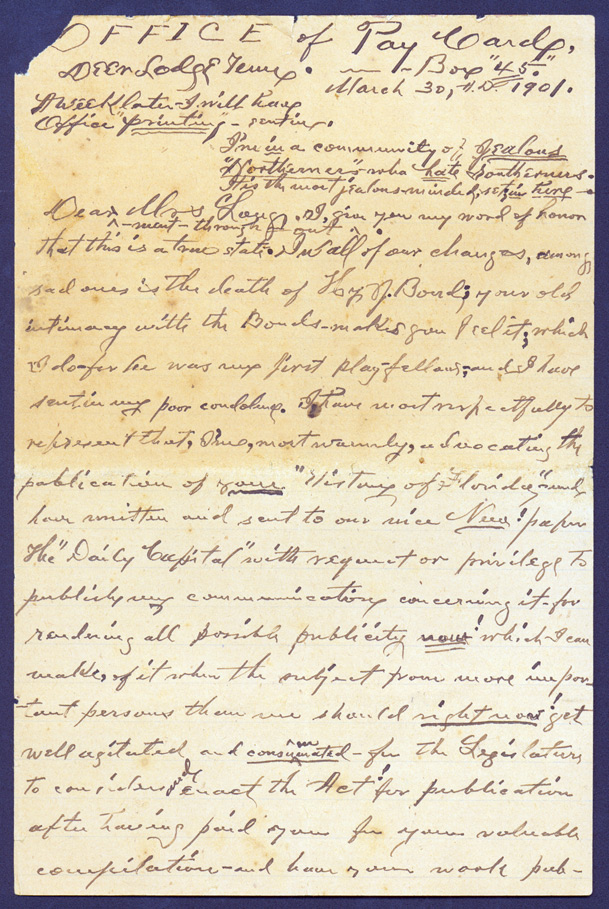 OFFICE of Pay Cards,
Deer Lodge Tenn. — Box "45."
March 30, A.D. 1901.
A week later I will have
Office "printing" - sent in.
I'm in a community of jealous
"Northerners" who hate Southerners.
It is the most jealous-minded, set, in
Dear Mrs Long, I, give you my word of honor
-ment- through & out
that this is a true state. In all of our changes, among
sad ones is the death of Hy. J. Bond; your old
intimacy with the Bonds - makes you feel it; which
I do - for he was my first play-fellow; and I have
sent in my poor condolence. I have most respectfully to
represent that, I'm, most warmly, advocating the
publication of your "History of Florida" and
have written and sent to our nice New! paper
The "Daily Capital" with request or privilege to
publish my communication concerning it - for
rendering all possible publicity now! which I can
make, of it when the subject from more impor-
tant persons than me should right now! get
well agitated and consummated - for the Legislature
to consider and enact the Act! for publication
after having paid you for your valuable
compilation - and have your work pub-